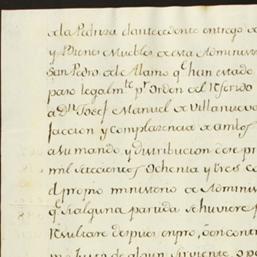 de la Pedrera de antecedente entrego de
y Bienes Muebles de esta Administ
San Pedro de Alamo q.e han estado
paro legalm.te p.r orden del Referido
a D.n Josef Manuel de Villanueva
faccion y complasencia de ambos
a su mando, y distribucion de pre
mil setecientos ochenta y tres co
el propio ministerio de Adminis
q.e si alguna partida se huviere p
resultare despues en pro, o en contr